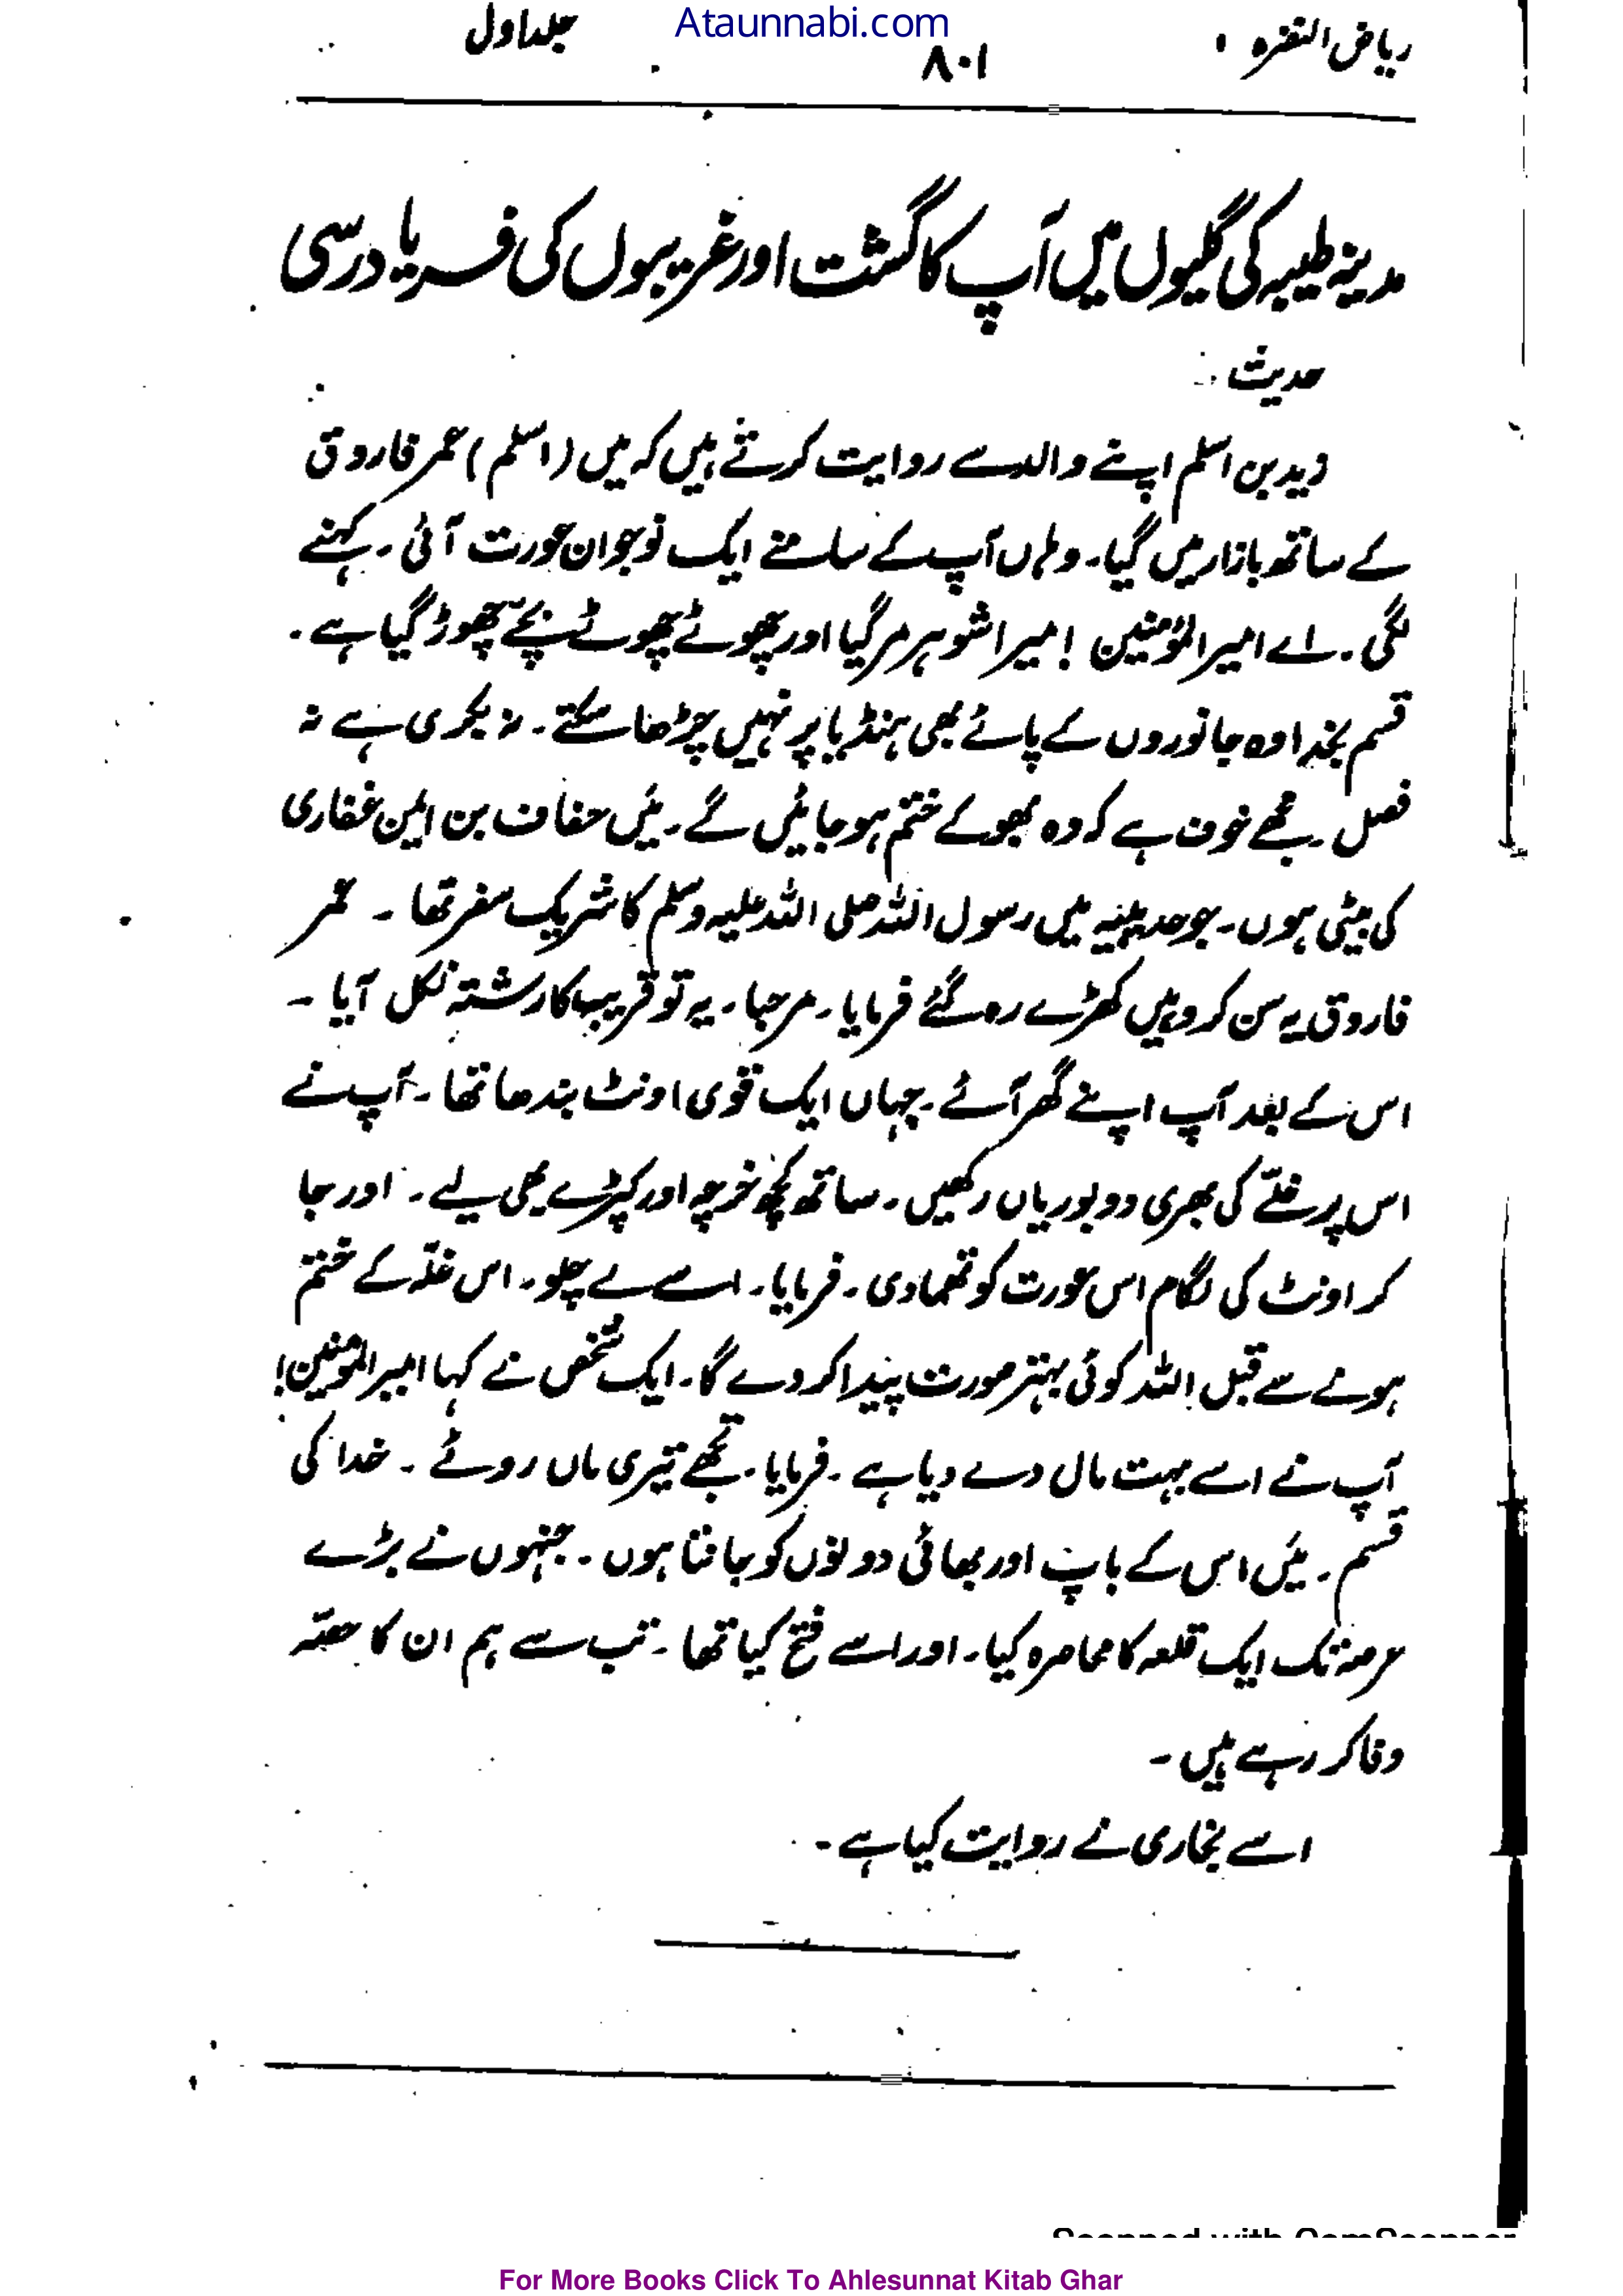 Ataunnabi.com
ریاض النضرہ ۸۰۱ جلد اول
مدینہ طیبہ کی گلیوں میں آپ کا گشت اور غریبوں کی فریاد رسی
حدیث :
زید بن اسلم اپنے والد سے روایت کرتے ہیں کہ میں (اسلم) عمر فاروق
کے ساتھ بازار میں گیا۔ وہاں آپ کے سامنے ایک نوجوان عورت آئی۔ کہنے
لگی۔ اے امیر المؤمنین! میرا شوہر مر گیا اور چھوٹے چھوٹے بچے چھوڑ گیا ہے۔
قسم بخدا وہ جانوروں کے پائے بھی ہنڈیا پر نہیں چڑھا سکتے۔ نہ بکری ہے نہ
فصل۔ مجھے خوف ہے کہ وہ بھوکے ختم ہو جائیں گے۔ میں حفاف بن ایمن غفاری
کی بیٹی ہوں۔ جو حدیبیہ میں رسول اللہ صلی اللہ علیہ وسلم کا شریک سفر تھا۔ عمر
فاروق یہ سن کر وہیں کھڑے رہ گئے فرمایا۔ مرحبا۔ یہ تو قریب کا رشتہ نکل آیا۔
اس کے بعد آپ اپنے گھر آئے۔ جہاں ایک قوی اونٹ بندھا تھا۔ آپ نے
اس پر غلّے کی بھری دو بوریاں رکھیں۔ ساتھ کچھ خرچہ اور کپڑے بھی لیے۔ اور جا
کر اونٹ کی لگام اس عورت کو تھما دی۔ فرمایا۔ اسے لے چلو۔ اس غلّہ کے ختم
ہونے سے قبل اللہ کوئی بہتر صورت پیدا کر دے گا۔ ایک شخص نے کہا امیر المؤمنین!
آپ نے اسے بہت مال دے دیا ہے۔ فرمایا۔ تجھے تیری ماں روئے۔ خدا کی
قسم۔ میں اس کے باپ اور بھائی دونوں کو جانتا ہوں۔ جنہوں نے بڑے
عرصہ تک ایک قلعہ کا محاصرہ کیا۔ اور اسے فتح کیا تھا۔ تب سے ہم ان کا حصّہ
وفا کر رہے ہیں۔
اسے بخاری نے روایت کیا ہے۔
Scanned with CamScanner
For More Books Click To Ahlesunnat Kitab Ghar